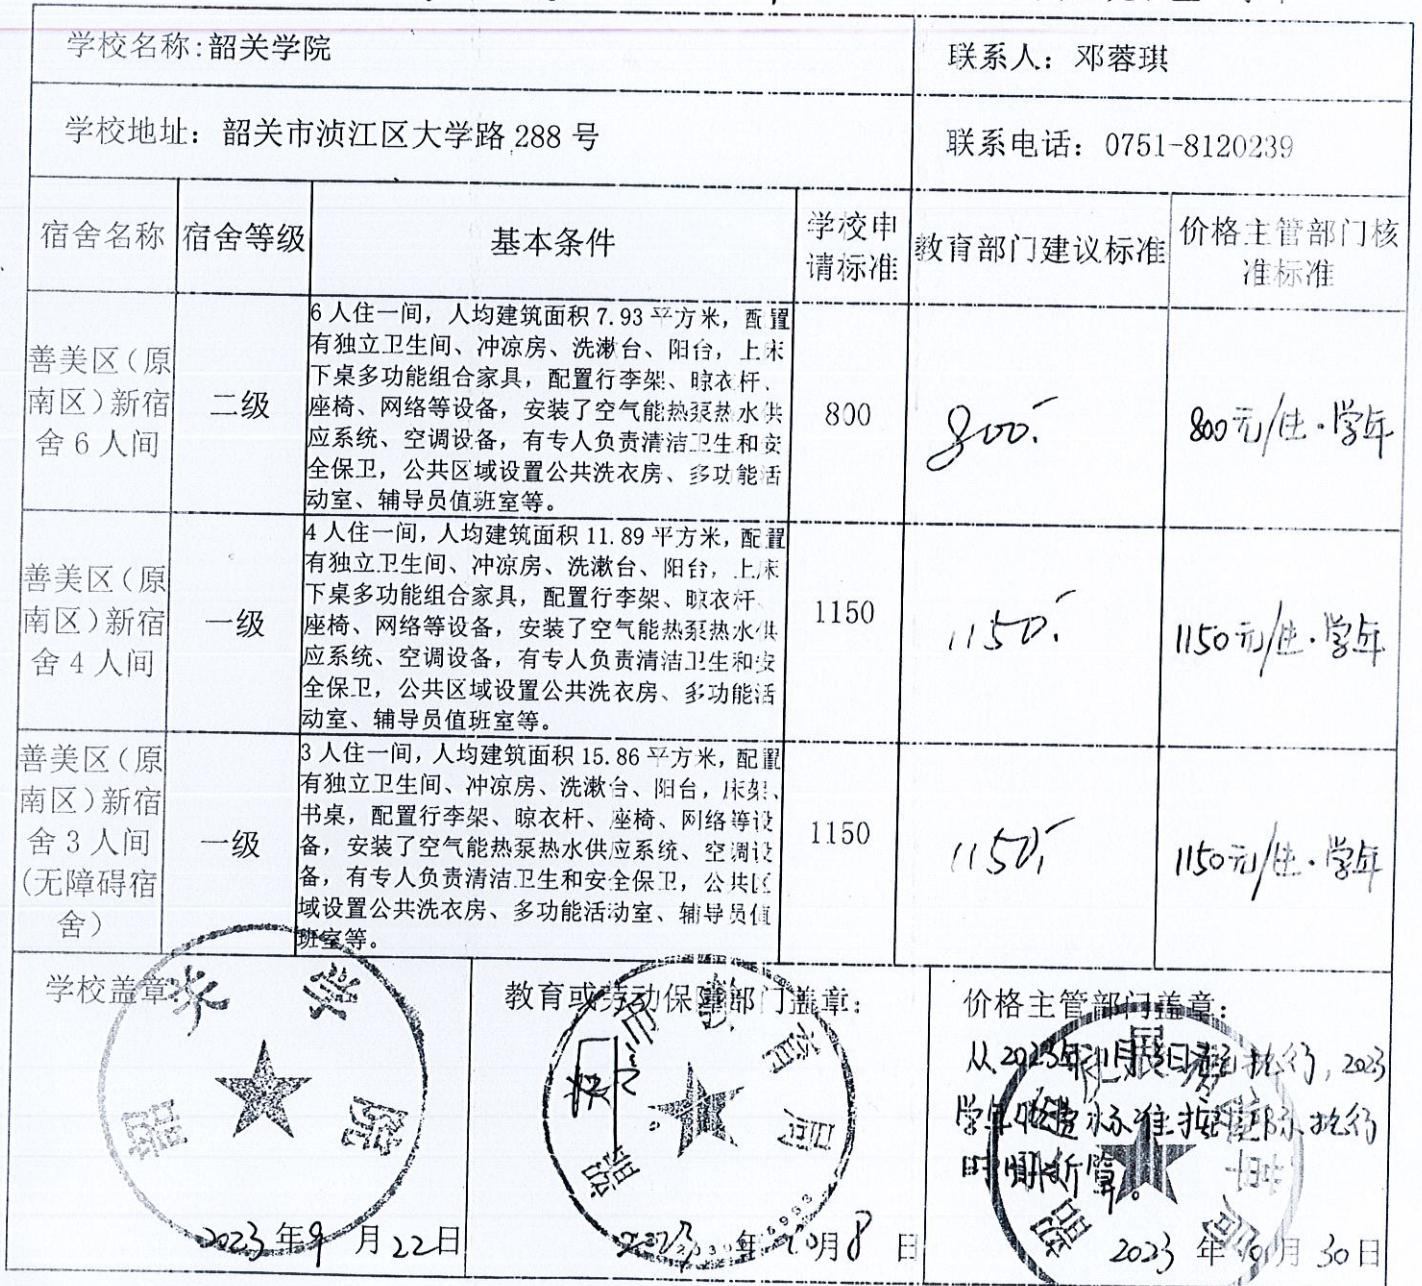 学校名称:韶关学院
联系人：邓蓉琪
学校地址：韶关市浈江区大学路 288 号
联系电话：0751-8120239
宿舍名称 宿舍等级 基本条件 学校申请标准 教育部门建议标准 价格主管部门核准标准
善美区（原
南区）新宿
舍 6 人间
二级
6 人住一间，人均建筑面积 7.93 平方米，配置
有独立卫生间、冲凉房、洗漱台、阳台，上床
下桌多功能组合家具，配置行李架、晾衣杆、
座椅、网络等设备，安装了空气能热泵热水供
应系统、空调设备，有专人负责清洁卫生和安
全保卫，公共区域设置公共洗衣房、多功能活
动室、辅导员值班室等。
800
800.
800元/生·学年
善美区（原
南区）新宿
舍 4 人间
一级
4 人住一间，人均建筑面积 11.89 平方米，配置
有独立卫生间、冲凉房、洗漱台、阳台，上床
下桌多功能组合家具，配置行李架、晾衣杆、
座椅、网络等设备，安装了空气能热泵热水供
应系统、空调设备，有专人负责清洁卫生和安
全保卫，公共区域设置公共洗衣房、多功能活
动室、辅导员值班室等。
1150
1150.
1150元/生·学年
善美区（原
南区）新宿
舍 3 人间
(无障碍宿
舍）
一级
3 人住一间，人均建筑面积 15.86 平方米，配置
有独立卫生间、冲凉房、洗漱台、阳台，床架、
书桌，配置行李架、晾衣杆、座椅、网络等设
备，安装了空气能热泵热水供应系统、空调设
备，有专人负责清洁卫生和安全保卫，公共区
域设置公共洗衣房、多功能活动室、辅导员值
班室等。
1150
1150.
1150元/生·学年
学校盖章
韶关学院
2023 年 9 月 22 日
教育或劳动保障部门盖章：
韶关市教育局
2023 年 10 月 8 日
价格主管部门盖章：
从2023年11月 日起执行，2023
学年 标准按实际执行
时间折算。
2023 年 10 月 30 日